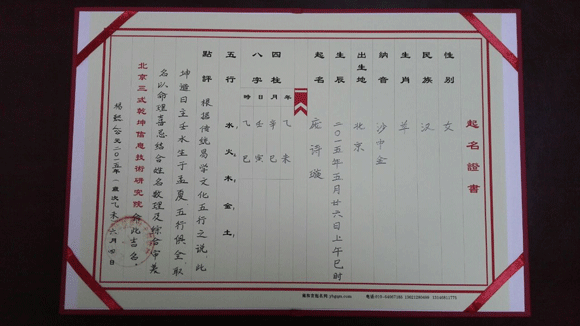 起名證書
性别 女
民族 汉
生肖 羊
納音 沙中金
出生地 北京
生辰 二〇一五年五月廿六日上午巳时
起名 诗璇
四柱 年 月 日 時
八字 乙未 辛巳 壬寅 乙巳
五行 水，火，木，金，土，
點評 根据传统易学文化五行之说，此
坤造日主壬水生于孟夏，五行俱全，取
名以命理喜忌结合姓名数理及综合审美
北京三式乾坤信息技術研究院
二〇一五年 歲次乙未六月 日